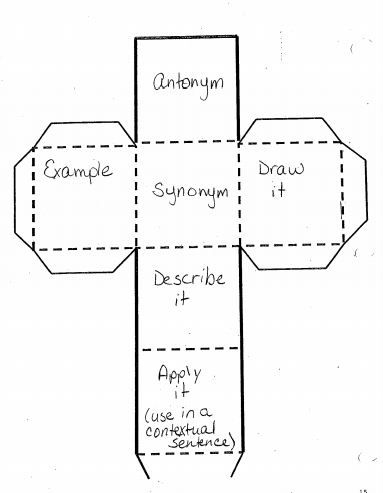 Antonym
Example
Synonym
Draw
it
Describe
it
Apply
it
(use in a
contextual
sentence)
15